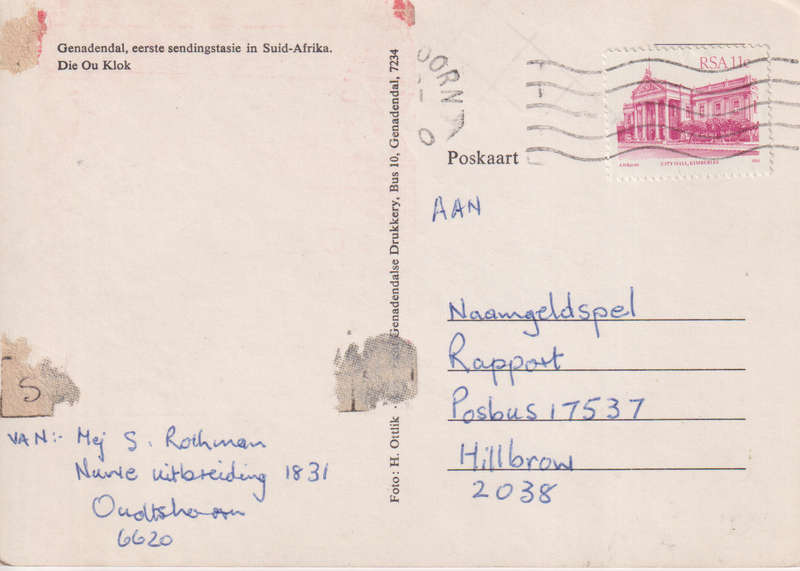 Genadendal, eerste sendingstasie in Suid-Afrika.
Die Ou Klok
Foto: H. Ottlik · Genadendalse Drukkery, Bus 10, Genadendal, 7234
OORN
RSA 11c
CITY HALL, KIMBERLEY
Poskaart
AAN
Naamgeldspel
Rapport
Posbus 17537
Hillbrow
2038
S
VAN:- Mej S. Rothman
Nuwe uitbreiding 1831
Oudtshoorn
6620